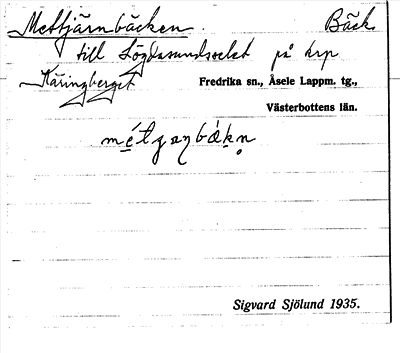 Mettjärnbäcken. Bäck
till Lögdasundselet på krp
Käringberget Fredrika sn., Åsele Lappm. tg.,
Västerbottens län.
Sigvard Sjölund 1935.